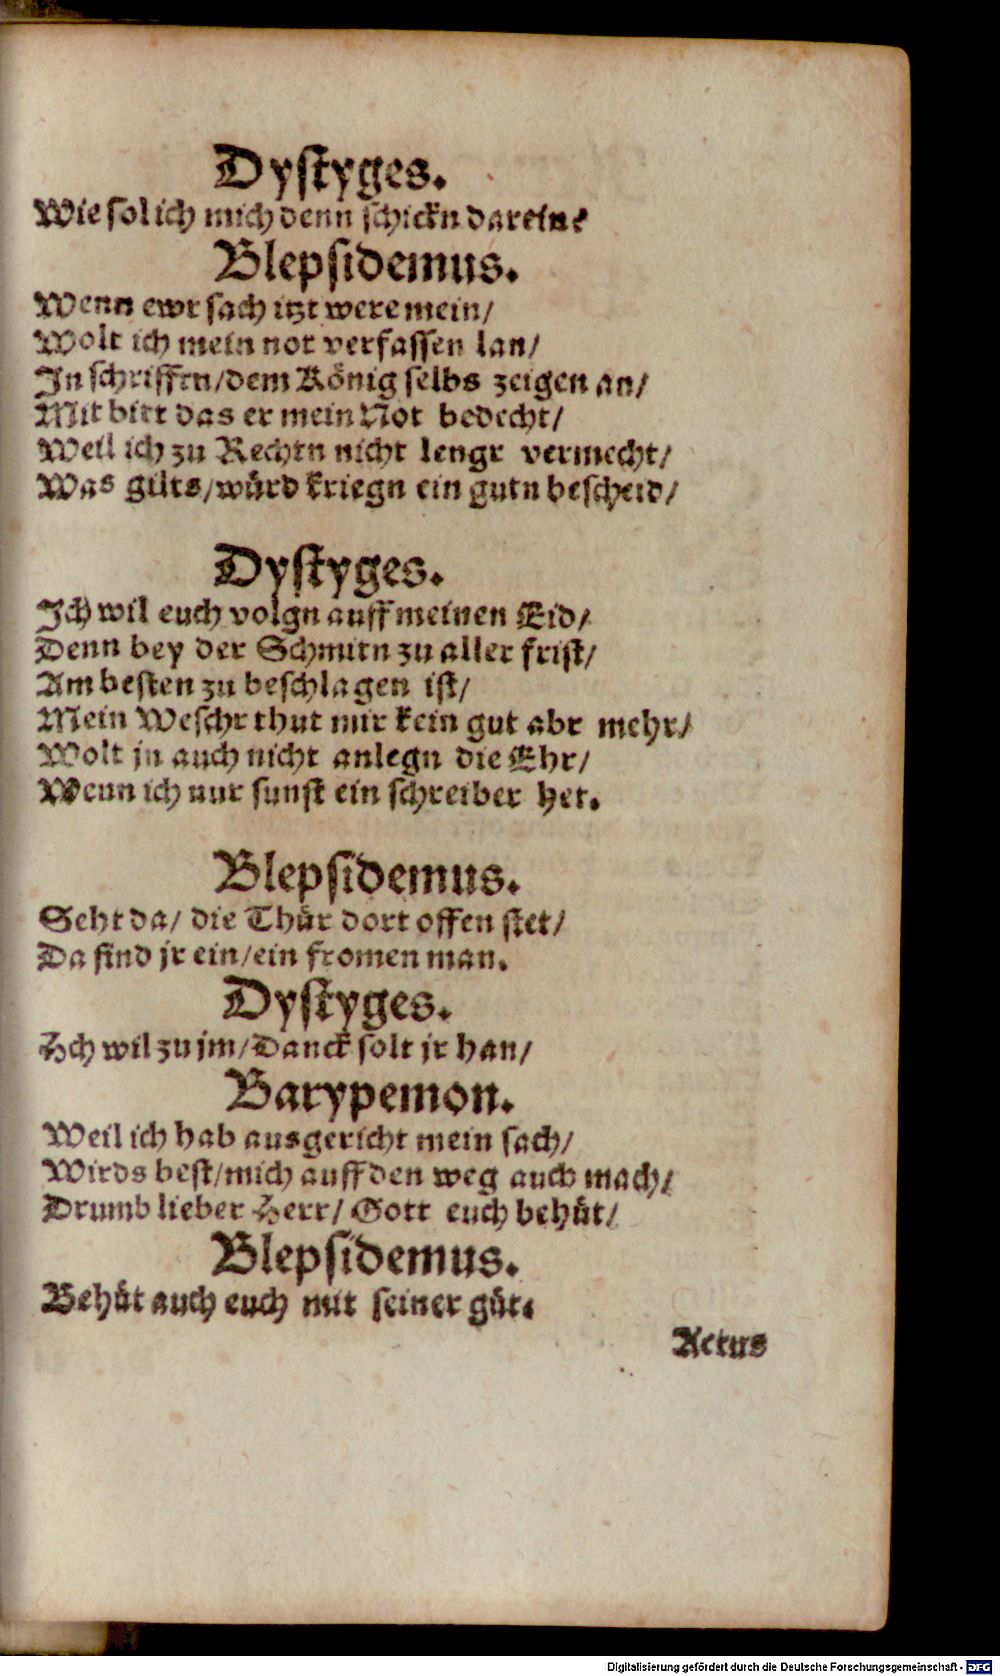 Dyſtyges.
Wie ſol ich mich denn ſchickn darein?
Blepſidemus.
Wenn ewr ſach itzt were mein/
Wolt ich mein not verfaſſen lan/
In ſchrifften/dem König ſelbs zeigen an/
Mit bitt das er mein Not bedecht/
Weil ich zu Rechtn nicht lengr vermecht/
Was gilts/würd kriegn ein gutn beſcheid/
Dyſtyges.
Ich wil euch volgn auff meinen Eid/
Denn bey der Schmitn zu aller friſt/
Am beſten zu beſchlagen iſt/
Mein Weſchr thut mir kein gut abr mehr/
Wolt jn auch nicht anlegn die Ehr/
Wenn ich nur ſunſt ein ſchreiber het.
Blepſidemus.
Seht da/ die Thür dort offen ſtet/
Da find jr ein/ein fromen man.
Dyſtyges.
Hch wil zu jm/Danck ſolt jr han/
Barypemon.
Weil ich hab ausgericht mein ſach/
Wirds beſt/mich auff den weg auch mach/
Drumb lieber Herr/ Gott euch behüt/
Blepſidemus.
Behüt auch euch mit ſeiner güt.
Actus
Digitalisierung gefördert durch die Deutsche Forschungsgemeinschaft - DFG